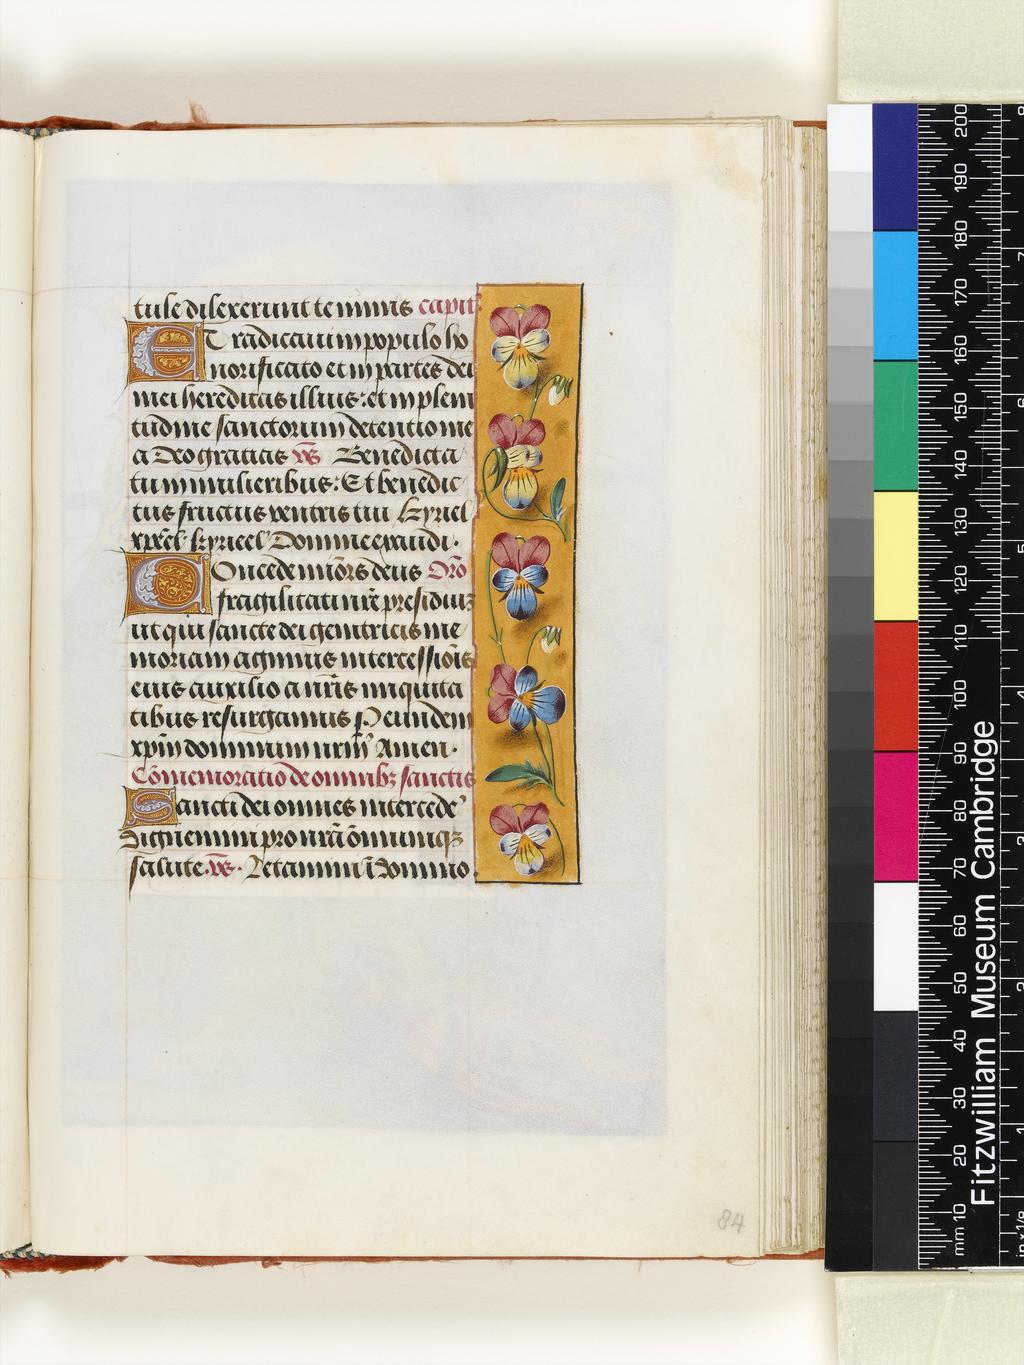 tule dilexerunt te nimis capitm̄
Et radicaui in populo ho
norificato et in partes dei
mei hereditas illius: et in pleni
tudine sanctorum detentio me
a Deo gratias v̄s Benedicta
tu in mulieribus: Et benedic
tus fructus ventris tui Kyriel
xp̄el kyrieel Domine exaudi.
Concede mi͞ors deus Or͞o
fragilitati nr̄e presidiuz
ut qui sancte dei genitricis me
moriam agimus intercessio͞is
eius auxilio a nr̄is iniquita
tibus resurgamus P eundem
xp̄m dominum nrm̄ Amen.
Co͞memoratio de omnibz sanctis
Sancti dei omnes intercede
Dignemini pro nr̄a omniumqz
salute. v̄s. Letamini i͞ Domino
84
Fitzwilliam Museum Cambridge
mm 10 20 30 40 50 60 70 80 90 100 110 120 130 140 150 160 170 180 190 200